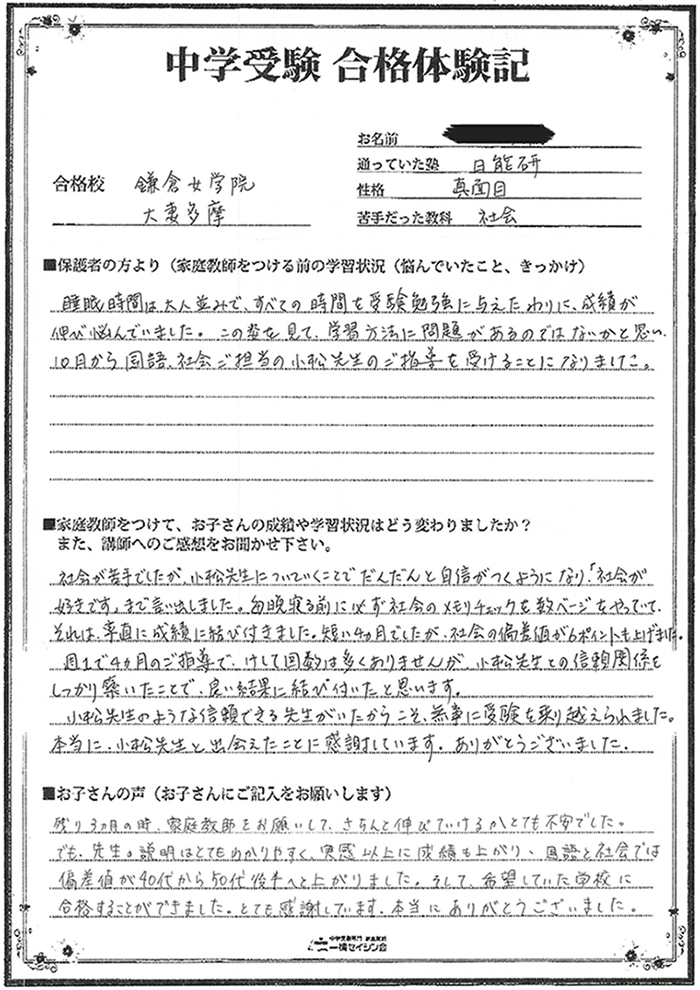 中学受験 合格体験記
お名前
通っていた塾 日能研
合格校 鎌倉女学院
性格 真面目
大妻多摩
苦手だった教科 社会
■保護者の方より（家庭教師をつける前の学習状況（悩んでいたこと、きっかけ）
睡眠時間は大人並みで、すべての時間を受験勉強に与えたわりに、成績が
伸び悩んでいました。この姿を見て、学習方法に問題があるのではないかと思い、
10月から国語、社会ご担当の小松先生のご指導を受けることになりました。
■家庭教師をつけて、お子さんの成績や学習状況はどう変わりましたか？
また、講師へのご感想をお聞かせ下さい。
社会が苦手でしたが、小松先生についていくことでだんだんと自信がつくようになり、「社会が
好きです」まで言い出しました。毎晩寝る前に必ず社会のメモリチェックを数ページをやっていて、
それは、率直に成績に結び付きました。短い4ヵ月でしたが、社会の偏差値が6ポイントも上げました。
週1で4ヵ月のご指導で、けして回数は多くありませんが、小松先生との信頼関係を
しっかり築いたことで、良い結果に結び付いたと思います。
小松先生のような信頼できる先生がいたからこそ、無事に受験を乗り越えられました。
本当に、小松先生と出会えたことに感謝しています。ありがとうございました。
■お子さんの声（お子さんにご記入をお願いします）
残り3ヵ月の時、家庭教師をお願いして、きちんと伸びていけるかとても不安でした。
でも、先生の説明はとてもわかりやすく、実感以上に成績も上がり、国語と社会では
偏差値が40代から50代後半へと上がりました。そして、希望していた学校に
合格することができました。とても感謝しています。本当にありがとうございました。
中学受験専門 家庭教師
一橋セイシン会